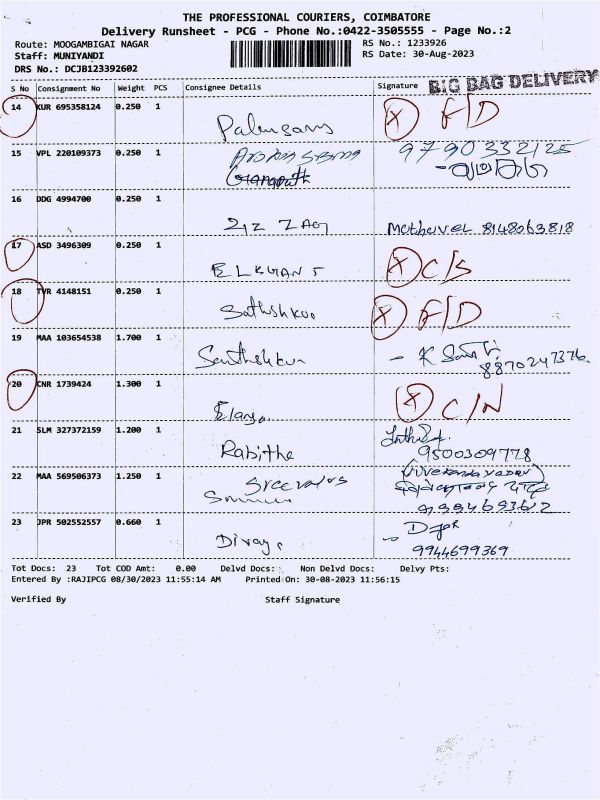 THE PROFESSIONAL COURIERS, COIMBATORE
Delivery Runsheet - PCG - Phone No.:0422-3505555 - Page No.:2
Route: MOOGAMBIGAI NAGAR RS No.: 1233926
Staff: MUNIYANDI RS Date: 30-Aug-2023
DRS No.: DCJB123392602
BIG BAG DELIVERY
S No Consignment No Weight PCS Consignee Details Signature
14 KUR 695358124 0.250 1 X F/D
15 VPL 220109373 0.250 1 9790332125
16 DDG 4994700 0.250 1 Mathavel 8148063818
17 ASD 3496309 0.250 1 X C/S
18 TYR 4148151 0.250 1 Sathshkur X F/D
19 MAA 103654538 1.700 1 8870247376
20 CNR 1739424 1.300 1 X C/N
21 SLM 327372159 1.200 1 Rabitha
9500309778
22 MAA 569506373 1.250 1
23 JPR 502552557 0.660 1 Divay
9944699369
Tot Docs: 23 Tot COD Amt: 0.00 Delvd Docs: Non Delvd Docs: Delvy Pts:
Entered By :RAJIPCG 08/30/2023 11:55:14 AM Printed On: 30-08-2023 11:56:15
Verified By Staff Signature